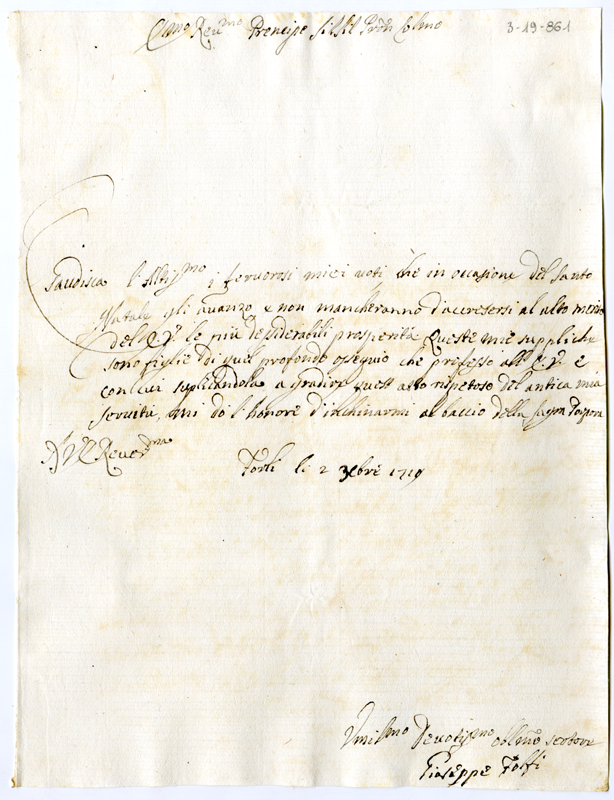 Em.mo Rev.mo Prencipe Sig.r Sig.r P'ron Col.mo
3-19-861
Gaudisca l'Altiss.mo i feruorosi miei uoti che in occasione del Santo
Natale gli auanzo e non mancheranno d'accresersi al alto merito
del E. V. le più desiderabili prosperità Queste mie suppliche
sono figlie di quel profondo ossequio che professo all E. V. e
con cui suplicandola a gradire quest atto rispetoso del antica mia
seruitù, mi dò l'honore d'inchinarmi al baccio della sagra Porpora
D V E Reuer.dma
Forlì li 2 Xbre 1719
Vmil.mo Deuotiss.mo seruitore
Gioseppe Folfi